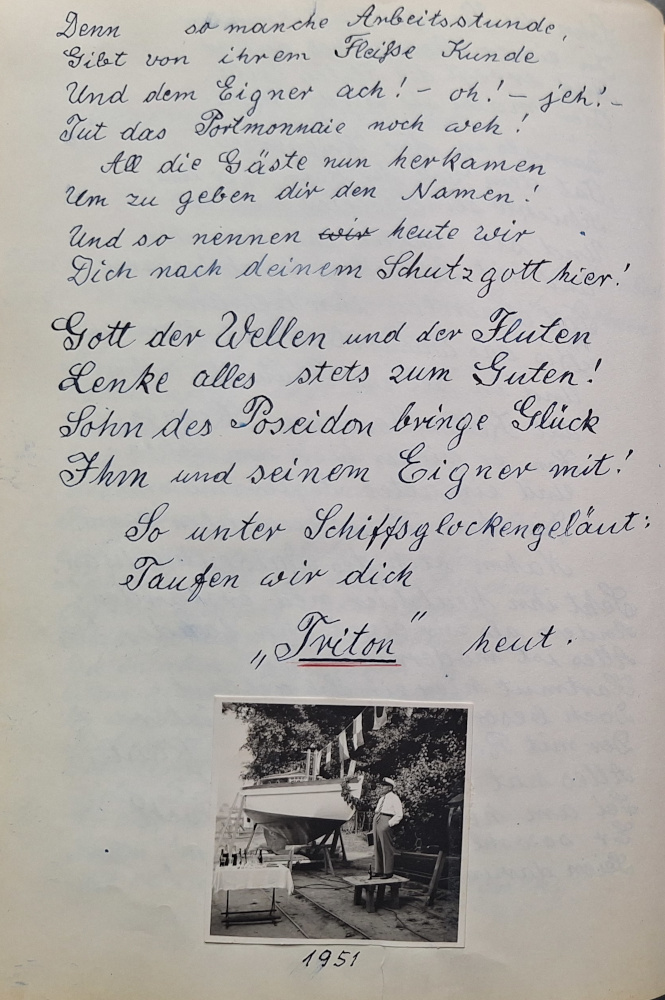 Denn so manche Arbeitsstunde,
Gibt von ihrem Fleiße Kunde
Und dem Eigner ach! – oh! – jeh! –
Tut das Portmonnaie noch weh!
All die Gäste nun herkamen
Um zu geben dir den Namen!
Und so nennen wir heute wir
Dich nach deinem Schutzgott hier!
Gott der Wellen und der Fluten
Lenke alles stets zum Guten!
Sohn des Poseidon bringe Glück
Ihm und seinem Eigner mit!
So unter Schiffsglockengeläut:
Taufen wir dich
„Triton" heut.
1951